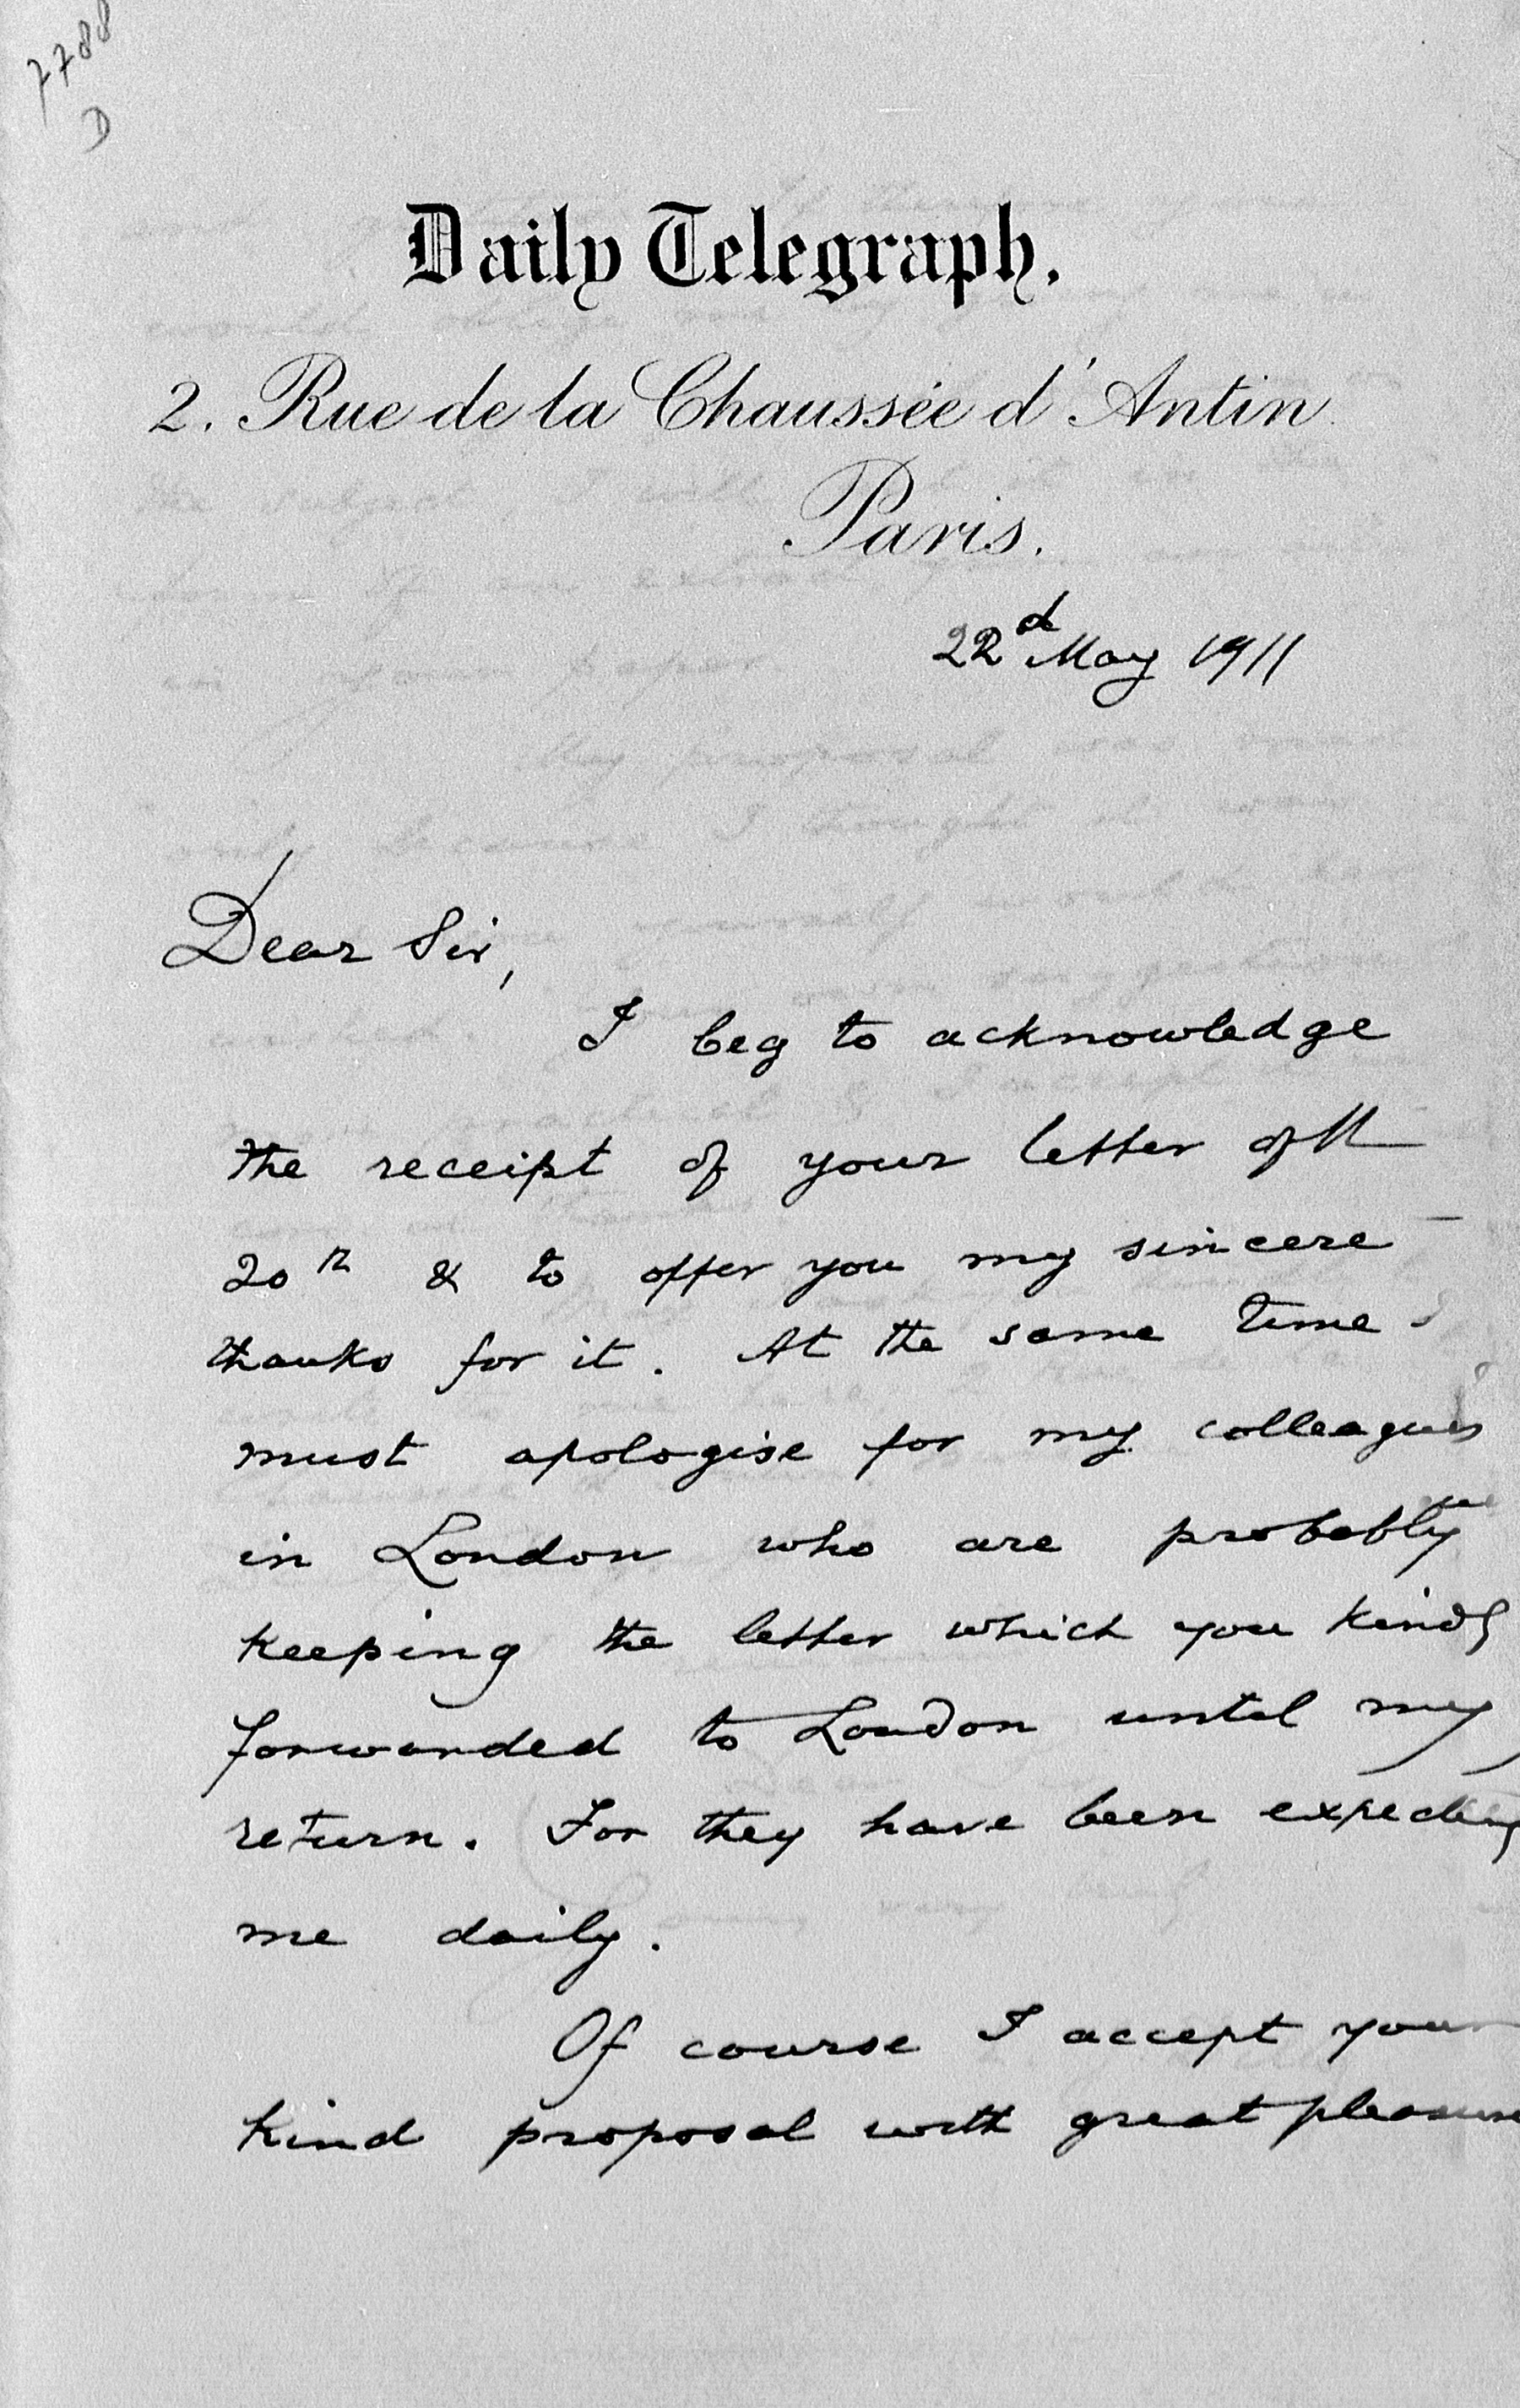 7788
D
Daily Telegraph.
2. Rue de la Chaussée d'Antin
Paris.
22d May 1911
Dear Sir,
I beg to acknowledge
the receipt of your letter of the
20th & to offer you my sincere
thanks for it. At the same time I
must apologise for my colleagues
in London who are probably
keeping the letter which you kindly
forwarded to London until my
return. For they have been expecting
me daily.
Of course I accept your
kind proposal with great pleasure